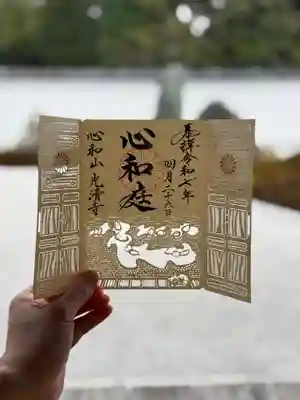 奉拝令和七年
四月二十六日
心和庭
心和山光清寺